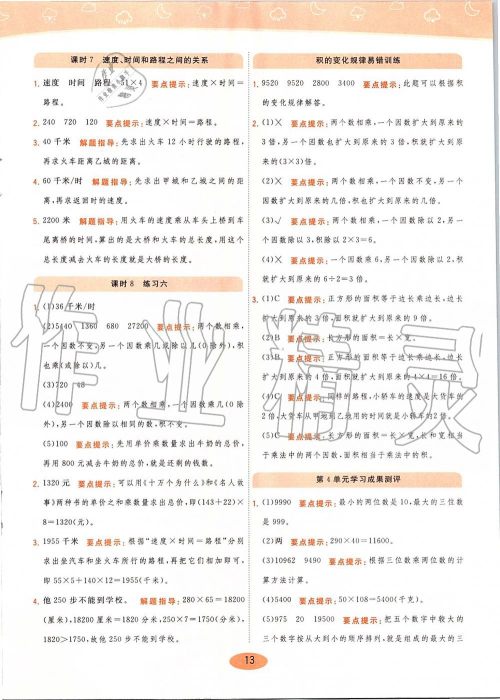 课时7 速度、时间和路程之间的关系
1. 速度 时间 路程 31×4 要点提示:速度×时间=
路程。
2. 240 720 120 要点提示:速度×时间=路程。
3. 40千米 解题指导:先求出火车12小时行驶的路程,
再求火车距离乙城的距离。
4. 60千米/时 解题指导:先求出甲城和乙城之间的距
离,再求返回时的速度。
5. 2200米 解题指导:用火车的速度乘从车头上桥到车
尾离桥的时间,算出的是大桥和火车的总长度,用这个
总长度减去火车的长度就是大桥的长度。
课时8 练习六
1. (1)36千米/时
(2)5440 1360 680 27200 要点提示:两个数相乘,
一个因数不变,另一个因数乘几或除以几(0除外),积
也乘(或除以)几。
(3)720 48
(4)2400 要点提示:两个数相乘,一个因数乘几(0除
外),另一个因数除以相同的数,积不变。
(5)100 要点提示:先用单价乘数量求出牛奶的总价,
再用800元减去牛奶的总价,就是还剩的钱数。
2. 1320元 要点提示:可以用《十万个为什么》和《名人故
事》两种书的单价之和乘数量求出总价,即(143+22)×
8=1320(元)。
3. 1955千米 要点提示:根据“速度×时间=路程”分别
求出坐汽车和坐火车所行的路程,再把它们相加即可,
即55×5+140×12=1955(千米)。
4. 他250步不能到学校。 解题指导:280×65=18200
(厘米),18200厘米=182米,250×7=1750(厘米),
1820>1750,故他250步不能到学校。
积的变化规律易错训练
1. 9520 9520 2800 3400 要点提示:此题可以根据积
的变化规律解答。
2. (1)× 要点提示:两个数相乘,一个因数扩大到原来的
3倍,另一个因数也扩大到原来的3倍,积就扩大到原来
的(3×3)倍。
(2)× 要点提示:两个数相乘,一个因数不变,另一个
因数扩大到原来的几倍,积也扩大到原来的几倍。
(3)√ 要点提示:两个数相乘,一个因数除以2,另一
个因数除以3,积除以2×3=6。
(4)× 要点提示:一个因数乘6,另一个因数除以2,
积就扩大到原来的6÷2=3倍。
3. (1)C 要点提示:正方形的面积等于边长乘边长,边长
(2)B 要点提示:长方形的面积=长×宽。
(4)C 要点提示:同样的路程,小轿车的速度是大货车
的2倍,大货车从甲地到乙地用的时间就是小轿车的2倍。
(5)C 要点提示:长方形的面积=长×宽,长和宽相当
于乘法中的两个因数,面积相当于乘法中的积。
第4单元学习成果测评
1. (1)9990 要点提示:最小的两位数是10,最大的三位数
是999。
(2)两 要点提示:290×40=11600。
(3)10962 9490 要点提示:根据三位数乘两位数的计
算方法计算。
(4)5400 要点提示:50×108=5400(千克)。
(5)975 20 19500 要点提示:把五个数字中较大的
三个数字按从大到小的顺序排列,就是组成的最大的三
13
作业精灵